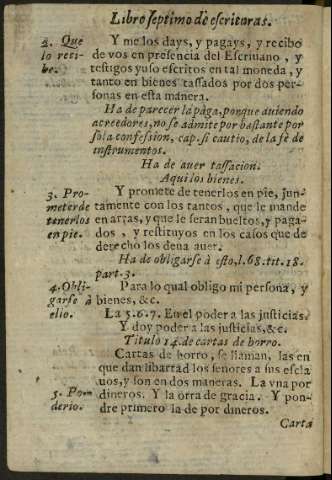 Libro septimo de escrituras.
2. Que lo recibe.
Y me los days, y pagays, y recibo
de vos en presencia del Escriuano, y
testigos yuso escritos en tal moneda, y
tanto en bienes tassados por dos per-
sonas en esta manera.
Ha de parecer la paga, porque auiendo
acreedores, no se admite por bastante por
sola confession, cap. si cautio, de la fè de
instrumentos.
Ha de auer tassacion.
Aqui los bienes.
3. Pro-
meterde
tenerlos
en pie.
Y promete de tenerlos en pie, jun-
tamente con los tantos, que le mande
en arras, y que le seran bueltos, y paga-
dos, y restituyos en los casos que de
derecho los deua auer.
Ha de obligarse à esto, l. 68. tit. 18.
part. 3.
4. Obli-
garse à
ello.
Para lo qual obligo mi persona, y
bienes, &c.
La 5. 6. 7. En el poder a las justicias.
Y doy poder a las justicias, &c.
Titulo 14. de cartas de horro.
Cartas de horro, se llaman, las en
que dan libartad los señores a sus escla
uos, y son en dos maneras. La vna por
5. Po-
derio.
dineros. Y la otra de gracia. Y pon-
dre primero la de por dineros.
Carta